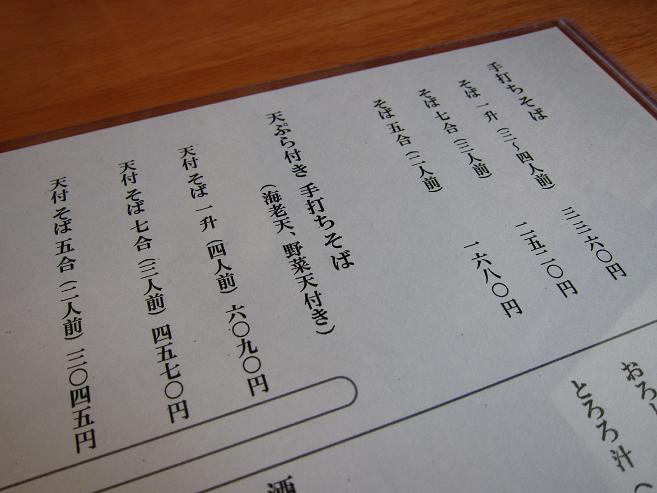 手打ちそば
そば 一升（三～四人前） 三三六〇円
そば 七合（三人前） 二五二〇円
そば 五合（二人前） 一六八〇円
天ぷら付き 手打ちそば
（海老天、野菜天付き）
天付 そば 一升（四人前）六〇九〇円
天付 そば 七合（三人前）四五七〇円
天付 そば 五合（二人前）三〇四五円
おろし
とろろ汁（
酒